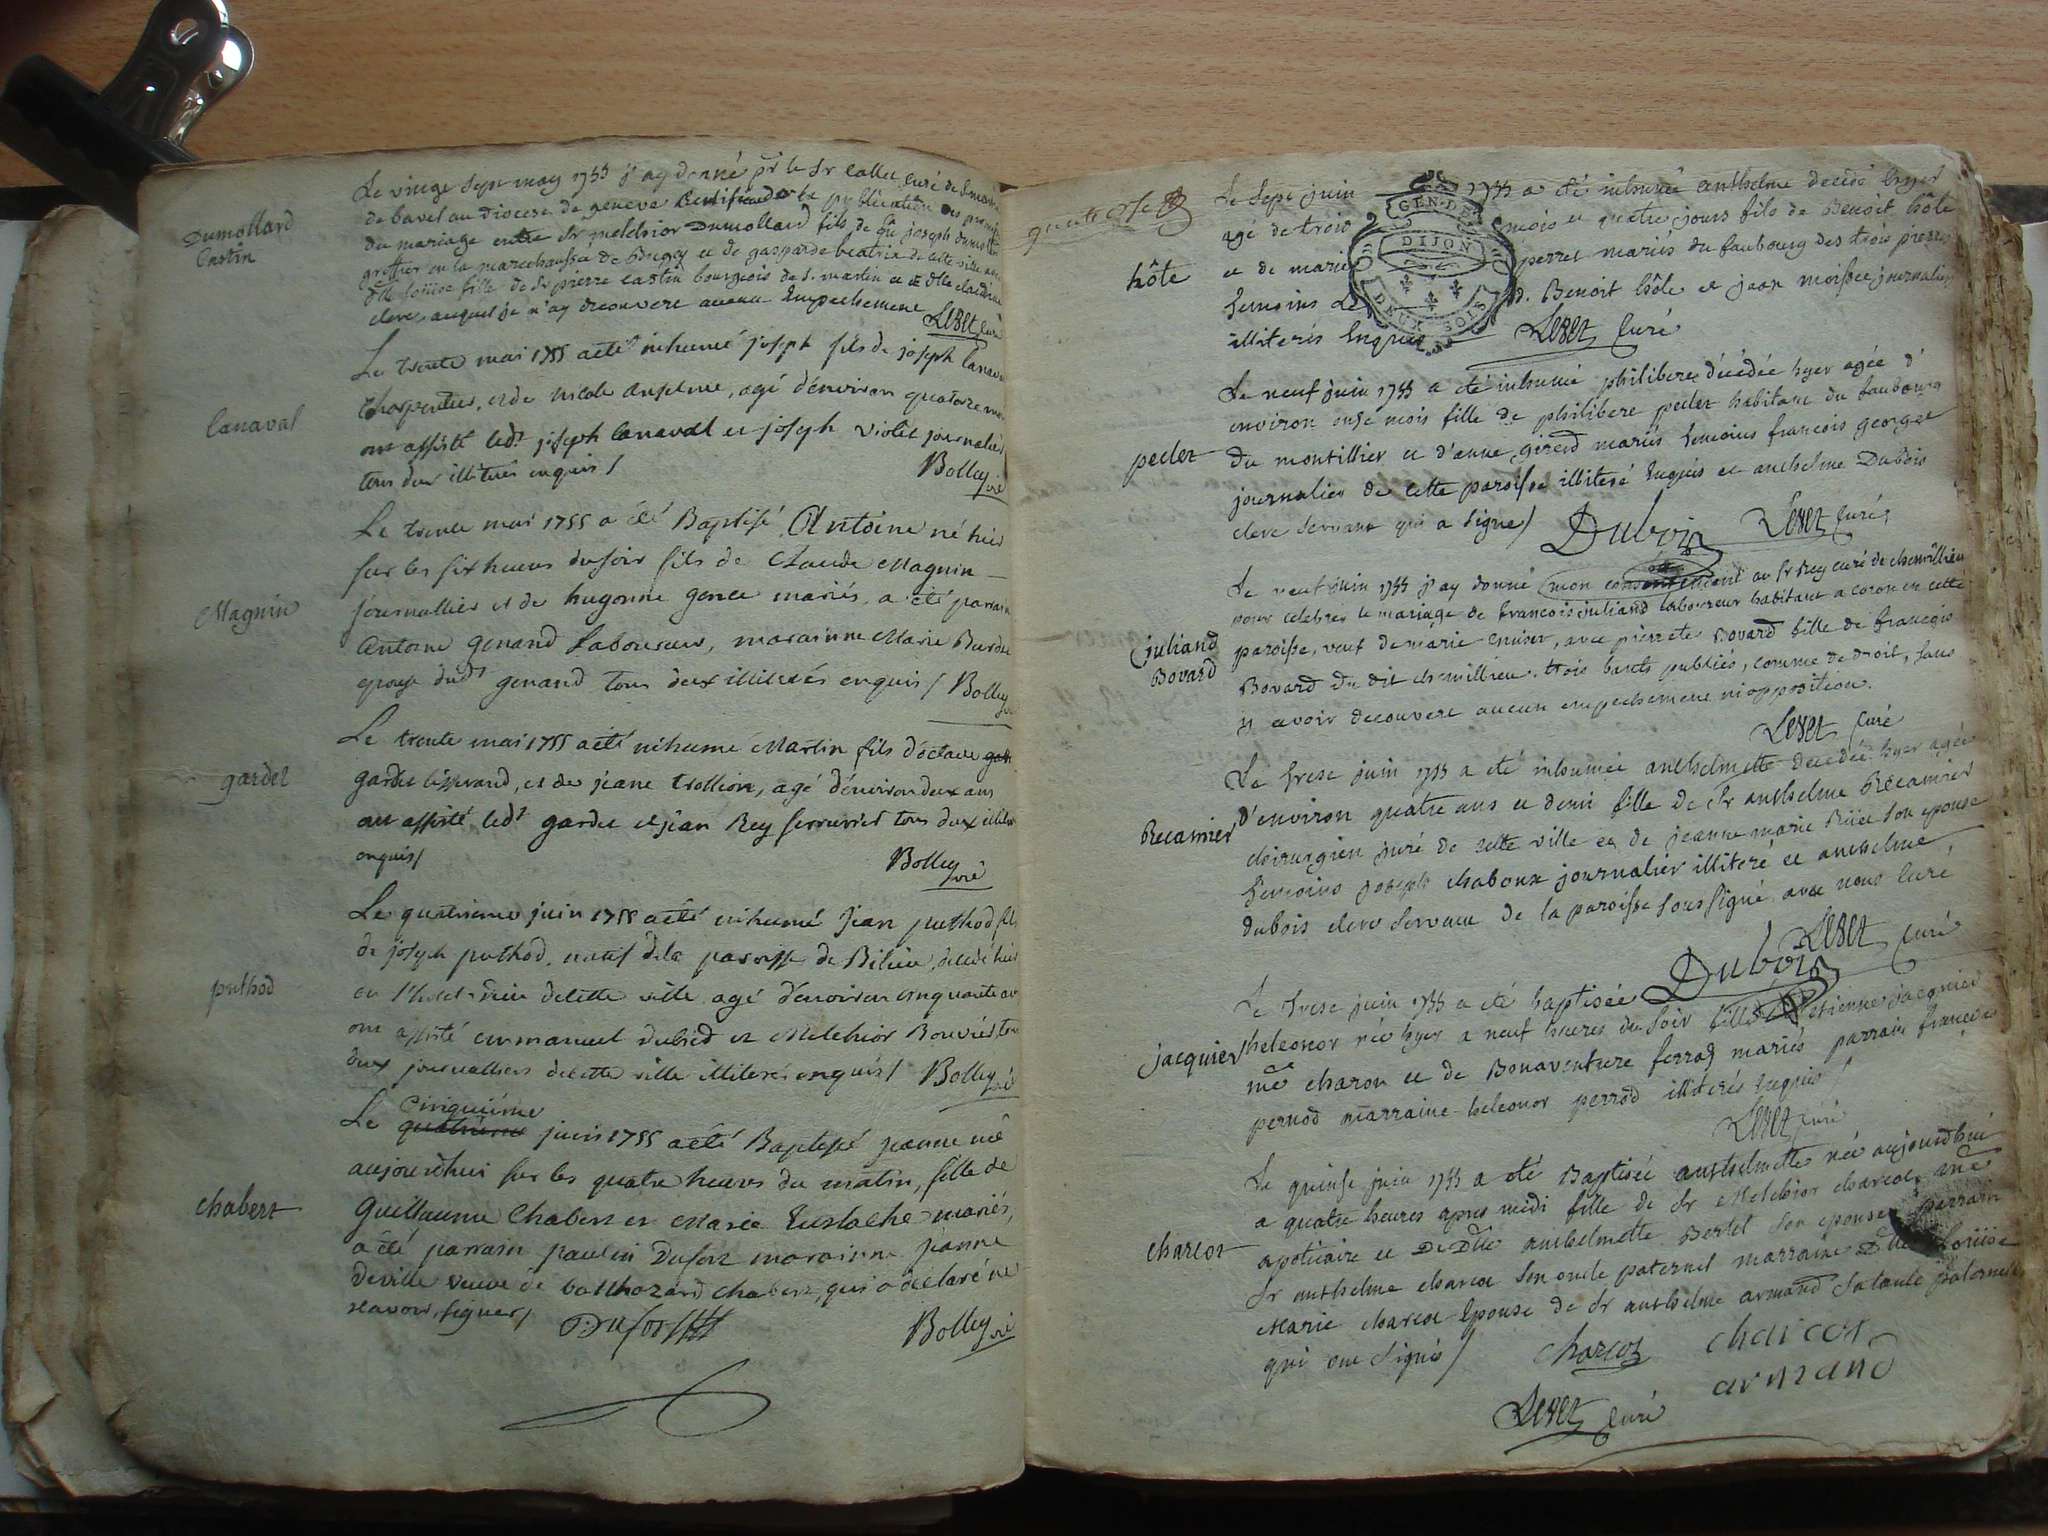 Dumollard
Castin
Le vingt sept may 1755 j'ay donné pr le Sr Callet curé de
de bavel au diocese de geneve certificat de la publication des
du mariage entre Sr melchior Dumollard fils de joseph
greffier en la marechaussée de Bugey et de gasparde beatrix de cette ville
Dlle loüise fille de Sr pierre castin bourgeois de St martin et de Dlle claudine
clerc, auquel je n'ay decouvert aucun Empechement Leset Curé
Canaval
Le trente mai 1755 a été inhumé joseph fils de joseph Canaval
charpentier, et de nicole anselme, agé d'environ quatorze
ont assisté ledt joseph Canaval et joseph violet journalier
tous deux illiterés enquis / Bolley vié
Magnin
Le trente mai 1755 a été Baptisé Antoine né hier
sur les six heures du soir fils de Claude Magnin
journallier et de hugonne gence mariés, a été parrain
Antoine genand Laboureur, marainne Marie
epouse dudt genand tous deux illiterés enquis / Bolley vié
gardet
Le trente mai 1755 a été inhumé Martin fils d'octave
gardet tisserand, et de jeane trollion, agé d'environ deux ans
ont assisté ledt gardet et jean Rey serrurier tous deux
enquis / Bolley vié
puthod
Le quatrieme juin 1755 a été inhumé Jean puthod fils
de joseph puthod, natif de la paroisse de decedé hier
en l'hotel-dieu de cette ville agé d'environ cinquante
ont assisté emmanuel et Melchior Bouvier tous
deux journalliers de cette ville illiterés enquis / Bolley vié
chabert
Cinquiéme
Le quatriéme juin 1755 a été Baptisé jeanne née
aujourdhui sur les quatre heures du matin, fille de
Guillaume Chabert et Marie Eustache mariés,
a été parrain paulin Dufort marainne jeanne
deville veuve de balthazard chabert, qui a déclaré ne
scavoir signer / Dufort Bolley vié
hôte
Le sept juin 1755 a été inhumé anthelme decedé hyer
agé de trois mois et quatre jours fils de Benoit hôte
et de marie perret mariés du faubourg des trois pierres
temoins led. Benoit hôte et jean journalier
illiterés Enquis Leset Curé
GEN. DE
DIJON
DEUX SOLS
peclet
Le neuf juin 1755 a été inhumé philiberte décédée hyer agée d'
environ onse mois fille de philibert peclet habitant du faubourg
du montillier et d'anne girerd mariés temoins francois george
journalier de cette paroisse illiteré Enquis et anthelme Dubois
clerc servant qui a signé / Dubois Leset Curé
juliand
Bovard
Le neuf juin 1755 j'ay donné mon consentement au Sr Rey curé de chemillieu
pour celebrer le mariage de francois juliand laboureur habitant a coron en cette
paroisse, veuf de marie avec pierrete Bovard fille de francois
Bovard du dit chemillieu. trois bants publiés, comme de droit, sans
y avoir decouvert aucun empechement ni opposition.
Leset Curé
Recamier
Le trese juin 1755 a été inhumée anthelmette decedée hyer agée
d'environ quatre ans et demi fille de Sr anthelme Recamier
chirurgien juré de cette ville et de jeanne marie son epouse
temoins joseph chaboux journalier illiteré et anthelme
dubois clerc servant de la paroisse soussigné avec nous Curé
Dubois Leset Curé
jacquier
Le trese juin 1755 a été baptisée
heleonor née hyer a neuf heures du soir fille d'etienne jacquier
me charon et de Bonaventure ferrad mariés parrain francois
pernod marraine heleonor perrod illiterés Enquis /
Leset Curé
charcot
Le quinse juin 1755 a été Baptisée anthelmette née aujourdhui
a quatre heures apres midi fille de Sr Melchior charcot me
apoticaire et De Dlle anthelmette Bertet son epouse parrain
Sr anthelme charcot son oncle paternel marraine Dlle Loüise
Marie charcot Epouse de Sr anthelme armand sa tante paternelle
qui ont signés / charcot charcot
armand
Leset Curé